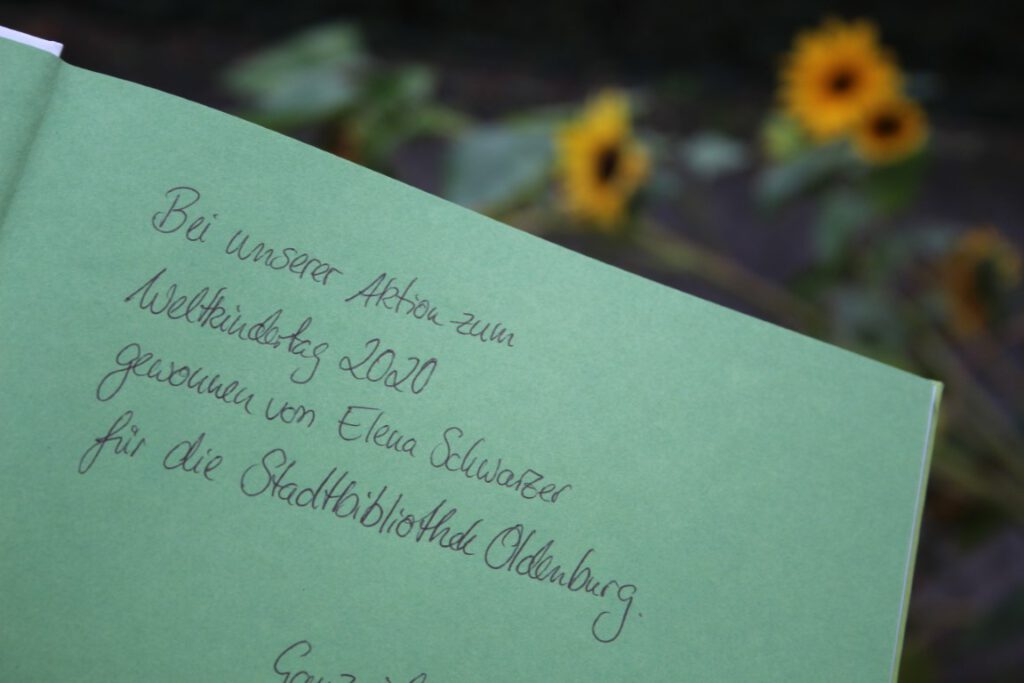 Bei unserer Aktion zum
Weltkindertag 2020
gewonnen von Elena Schwarzer
für die Stadtbibliothek Oldenburg.